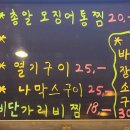 *총알 오징어통찜 20,
*열기구이 25,-
*나마스구이 25,-
비단가리비찜 18,-
*
바
장
소
구
3